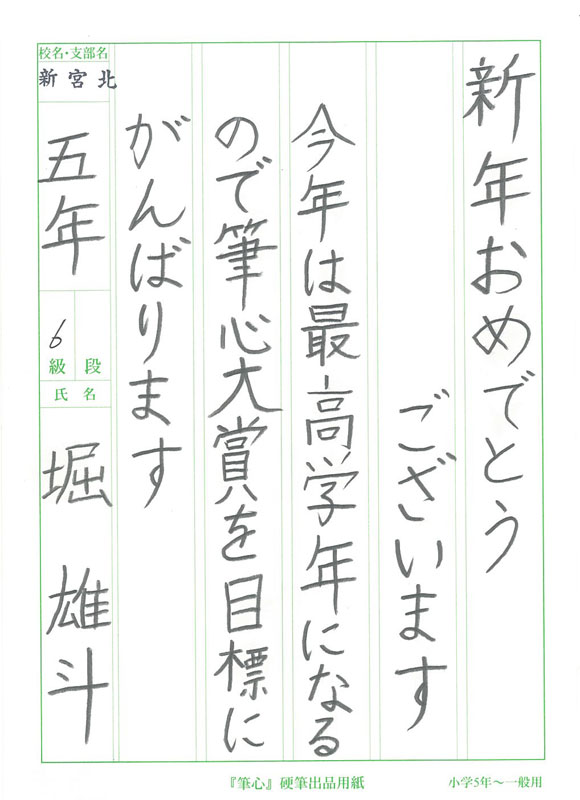 新年おめでとう
ございます
今年は最高学年になる
ので筆心大賞を目標に
がんばります
校名・支部名
新宮北
五年
6
級 段
氏名
堀 雄斗
『筆心』硬筆出品用紙
小学5年～一般用